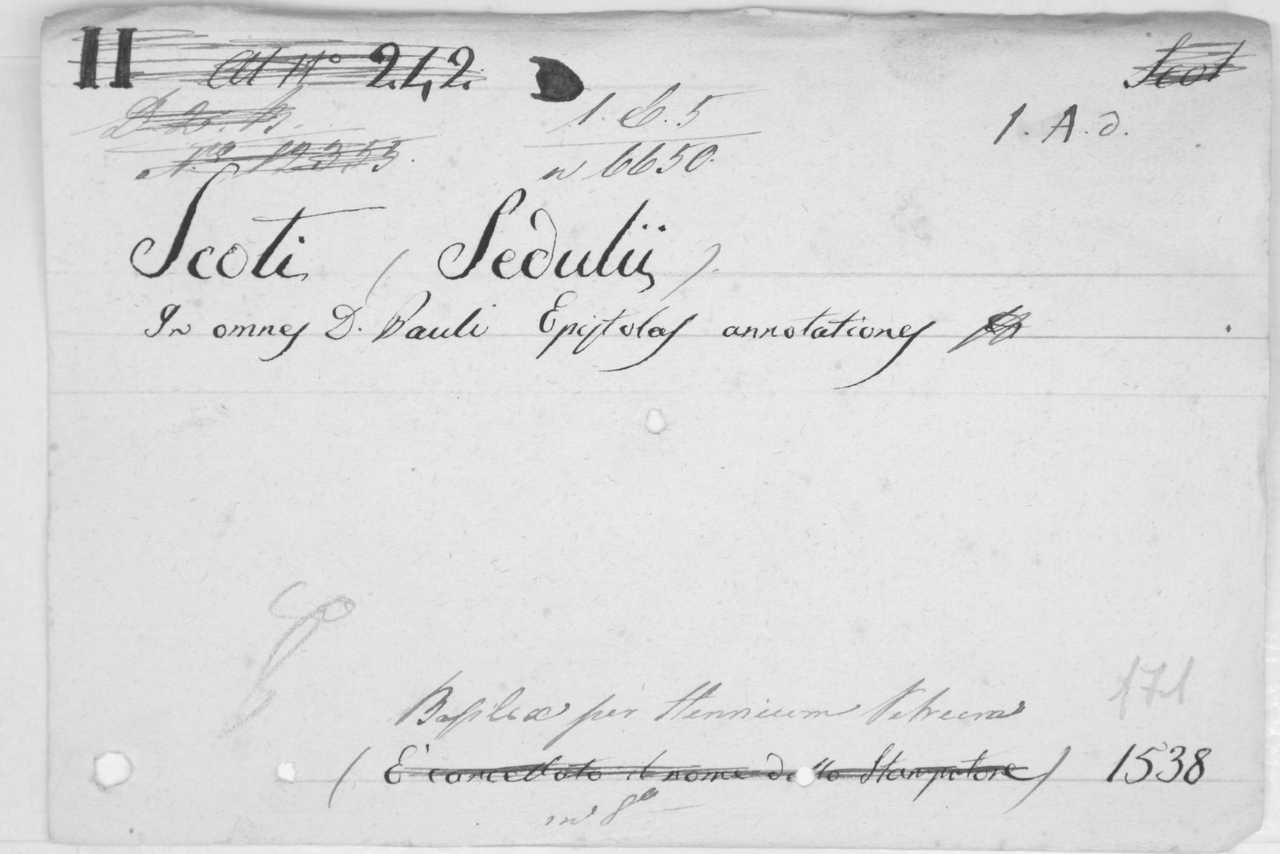 II At N° 242 Scot
1. C. 5 1. A. d.
N° 12353.
n 6650.
Scoti (Sedulii).
In omnes D. Pauli Epistolas annotationes
171
Basileæ per Henricum Petrum
(È cancellato il nome dello Stampatore) 1538
in 8°